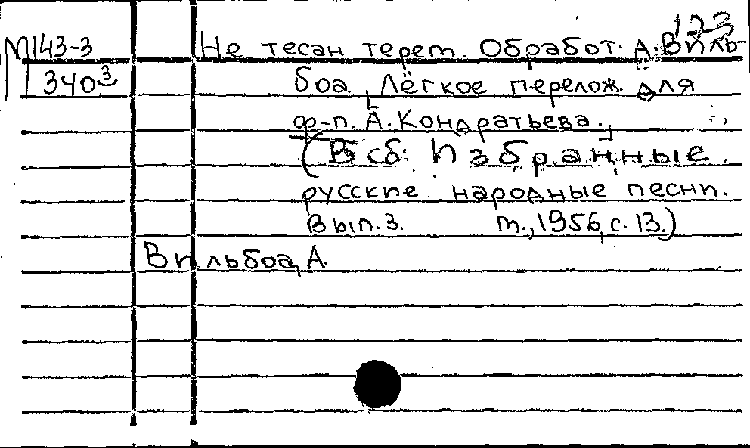 123
М143-3 Не тесан терем. Обработ. А. Виль-
340³ боа, Лёгкое перелож. для
ф-п. А. Кондратьева.
(В сб: Избранные
русские народные песни.
Вып. 3. М., 1956, с. 13.)
Вильбоа, А.